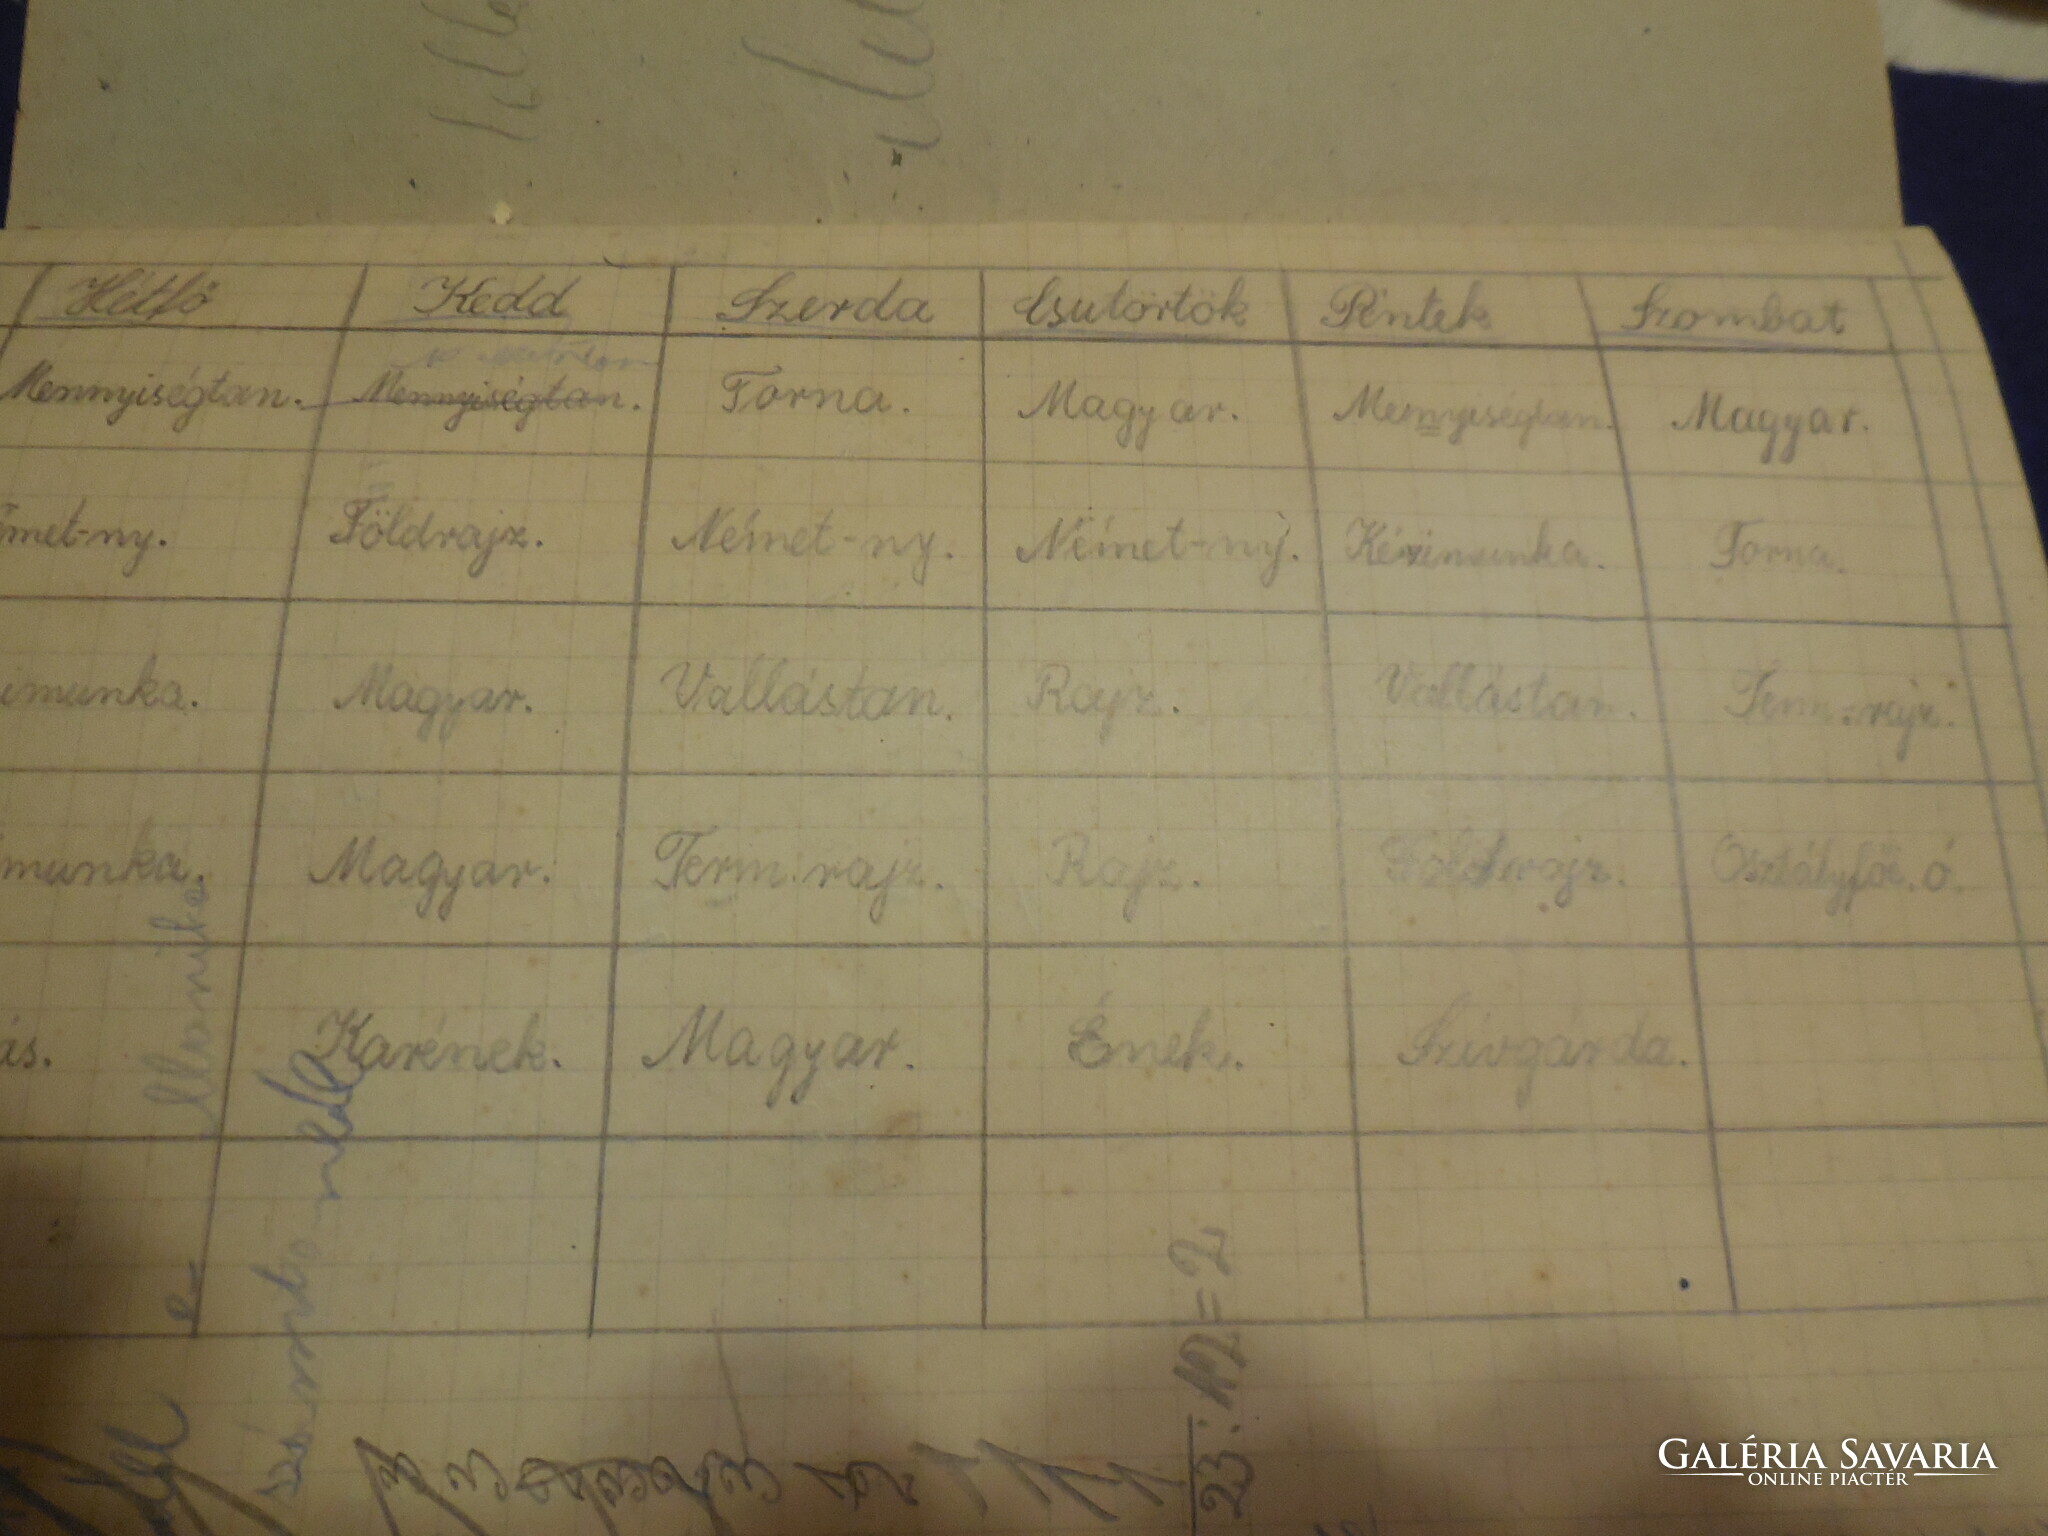 Hétfő Kedd Szerda Csütörtök Péntek Szombat
Mennyiségtan. Mennyiségtan. Torna. Magyar. Mennyiségtan. Magyar.
émet-ny. Földrajz. Német-ny. Német-ny. Kézimunka. Torna.
imunka. Magyar. Vallástan. Rajz. Vallástan. Term.rajz.
munka. Magyar. Term.rajz. Rajz. Földrajz. Osztályfői.ó.
ás. Karének. Magyar. Ének. Szívgárda.
23:12=2
GALÉRIA SAVARIA
ONLINE PIACTÉR